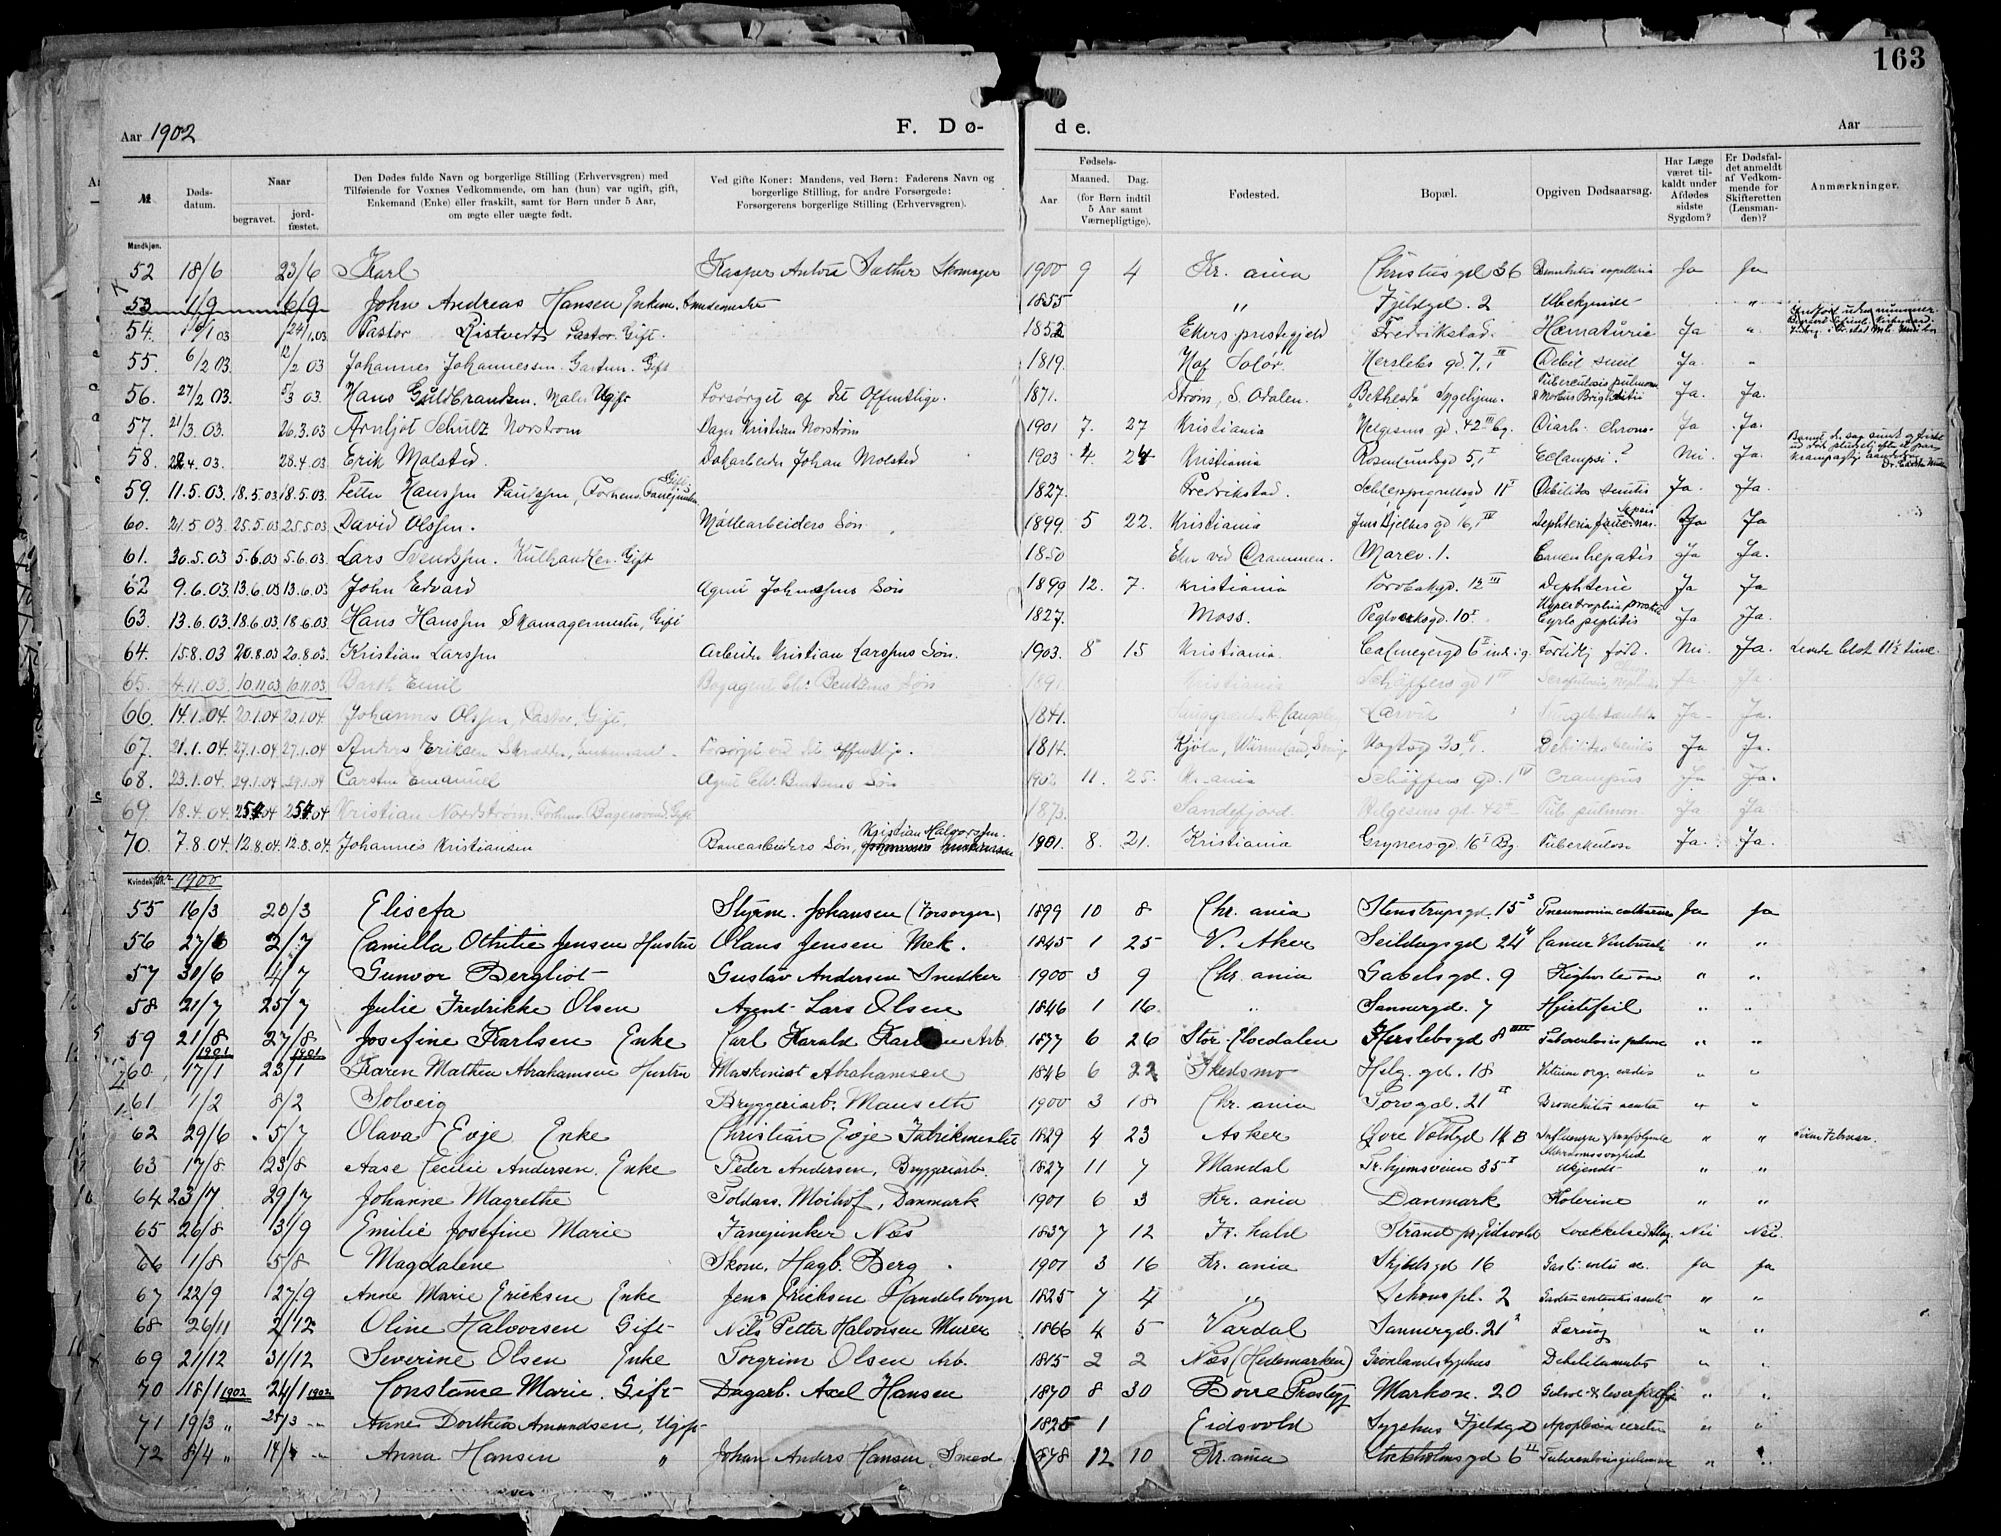 163
Aar 1902 F. Dø- de. Aar
№ Døds-datum. Naar begravet. jord-fæstet. Den Dødes fulde Navn og borgerlige Stilling (Erhvervsgren) med Tilføiende for Voxnes Vedkommende, om han (hun) var ugift, gift, Enkemand (Enke) eller fraskilt, samt for Børn under 5 Aar, om ægte eller uægte født. Ved gifte Koner: Mandens, ved Børn: Faderens Navn og borgerlige Stilling, for andre Forsørgede: Forsørgerens borgerlige Stilling (Erhvervsgren). Fødsels- Aar Maaned. Dag. (for Børn indtil 5 Aar samt Værnepligtige). Fødested. Bopæl. Opgiven Dødsaarsag. Har Læge været til-kaldt under Afdødes sidste Sygdom? Er Dødsfal-det anmeldt af Vedkom-mende for Skifteretten (Lensman-den)? Anmærkninger.
Mandkjøn.
52 18/6 23/6 Karl Kasper Antons Sæther Skomager 1900 9 4 Kr. ania Christies gd 36 Ja Ja
53 1/9 6/9 John Andreas Hansen Enkem. 1855 " Fjeldgd. 2 Ubekjendt "
54. /1 03 24/1.03 Pastor Ristvedt Pastor. Gift. 1852 Ekers prestegjeld Fredrikstad. Hæmaturie Ja "
55. 6/2 03. 12/2 03 Johannes Johannessen. Gartner. Gift 1819. Hof Solør. Herslebs gd 7, III Debil senil Ja. "
56. 27/2 03. 5/3 03. Hans Guldbrandsen. Maler Ugift Forsørget af det Offentlige. 1871. Strøm, S. Odalen. "Bethesda" Sygehjem. Tuberculosis pulmon. & Morbus Brightii Ja. Ja.
57. 21/3. 03. 26.3.03 Arnljot Schulz Norstrøm Bager Kristian Norstrøm 1901 7. 27 Kristiania Helgesens gd. 42 III bg. Diarh. Chrons. Ja Ja.
58. 22.4.03. 28.4.03 Erik Molsted. Johan Molsted 1903. 4. 24 Kristiania Rosenlundsgd 5, I Eclampsi? Nei. Ja.
59. 11.5.03. 18.5.03 18.5.03 Petter Hanssen Paulssen, Forhenv. Fanejunker Gift 1827. Fredrikstad. Schleppegrellsgd 11 I Debilitas senilis Ja. Ja.
60. 21.5.03 25.5.03 25.5.03 David Olssen. Møllearbeiders Søn 1899 5 22. Kristiania Jens Bjelkes gd 16, IV Dephteria Ja Ja
61. 30.5.03 5.6.03 5.6.03 Lars Svendssen. Kulhandler. Gift 1850 Eker ved Drammen. Marev. 1. Cancer hepatis Ja Ja.
62 9.6.03 13.6.03 13.6.03 John Edvard Agent Johnsens Søn 1899 12. 7. Kristiania Torvbakgd. 12 III Dephterie Ja Ja
63. 13.6.03. 18.6.03 18.6.03 Hans Hanssen Skomagermester, Gift 1827. Moss. 10 I Hypertrophia prostat. Ja Ja.
64. 15.8.03 20.8.03 20.8.03. Kristian Larssen Arbeider Kristian Larssens Søn. 1903. 8 15 Kristiania. Calmeyergd 6 I ind. ig. Fortidlig født. Nei. Ja. Levede blot 11½ time.
65. 4.11.03 10.11.03 10.11.03. Barth Emil Bogagent Chr. Bentzens Søn 1891 Kristiania Schøffers gd 1 IV Ja Ja.
66. 14.1.04. 20.1.04 20.1.04 Johannes Olssen, Pastor, Gift. 1841. Larvik Ja Ja.
67. 21.1.04. 27.1.04 27.1.04. Anders Eriksen Skrædder, Enkemand. Forsørget ved det offentlige. 1814. Kjøla, Wærmland, Sverige Vogtsgd 30, II. Debilitas senilis Ja Ja.
68. 23.1.04 29.1.04 29.1.04 Carsten Emanuel Agent Chr. Bentzens Søn 1902 11. 25. Kr. ania Schøffers gd. 1 IV Crampus Ja Ja.
69. 18.4.04. 25.4.04 25.4.04 Kristian Nordstrøm. Forhenv. Bagersvend. Gift 1873. Sandefjord. Helgesens gd. 42 II Tub. pulmon Ja Ja
70. 7.8.04. 12.8.04. 12.8.04. Johannes Kristiansen Banearbeiders Søn, Kristian Halvorssen. 1901. 8. 21. Kristiania Grynersgd. 16 I Bg. Tuberkulose Ja. Ja.
Kvindekjøn. 1900
55 16/3 20/3 Elisefa Styrm. Johansen (Forsørger) 1899 10 8 Chr. ania Stenstrupsgd. 15 3 Pneumonia catharral Ja Ja
56 27/6 2/7 Camilla Othilie Jensen Hustru Olaus Jensen Mek. 1845 1 25 V. Aker Seildugsgd 24 II Cancer Ventriculi " "
57 30/6 4/7 Gunvor Bergliot Gustav Andersen Snedker 1900 3 9 Chr. ania Gabelsgd. 9 Kighoste " "
58 21/7 25/7 Julie Fredrikke Olsen Agent Lars Olsen 1846 1 16 " Sannergd. 7 Hjertefeil " "
59 21/8 27/8 Josefine Karlsen Enke Carl Harald Karlsen Arb. 1877 6 26 Stor-Elvedalen Herslebsgd 8 IIII Tuberculosis pulmon " "
60 17/1 1901 23/1 1901 Karen Mathea Abrahamsen Hustru Maskinist Abrahamsen 1846 6 22 Skedsmo Helg. gd. 18 Vitium org. cordis " "
61 1/2 8/2 Solveig Bryggeriarb. Manseth 1900 3 18 Chr. ania Torvgd. 21 II Bronchitis acuta " "
62 29/6 5/7 Olava Evje Enke Christian Evje Fabrikmester 1829 4 23 Asker Øvre Voldgd 14 B Influenza " "
63 17/8 23/8 Aase Cecilie Andersen. Enke Peder Andersen, Bryggeriarb. 1827 11 7 Mandal Tr. hjemsveien 35 I Alderdomssvaghed Ukjendt " "
64 23/7 29/7 Johanne Magrethe Moihof, Danmark 1901 6 3 Kr. ania Danmark Kolerine " "
65 26/8 3/9 Emilie Josefine Marie Fanejunker Næs 1837 7 12 Fr. hald Strand pr. Eidsvold Nei Nei.
66 1/8 5/8 Magdalene Skom. Hagb. Berg 1901 3 16 Kr. ania Skibelsgd 16 Ja Ja
67 22/9 27/9 Anne Marie Ericksen Enke Jens Ericksen Handelsborger 1825 7 4 " Schous pl. 2 " "
68 26/11 2/12 Oline Halvorsen Gift Nils Petter Halvorsen Murer 1866 4 5 Vardal Sannergd. 21 2 Tæring " "
69 21/12 31/12 Severine Olsen Enke Torgrim Olsen Arb. 1815 2 2 Næs (Hedemarken) " "
70 18/1 1902 24/1 1902 Constance Marie. Gift Dagarb. Axel Hansen 1870 8 30 Borre Prestegj. Markv. 20 " "
71 19/3 " Anne Dorthea Amundsen, Ugift 1825 1 Eidsvold Sygehus Fjeldgd " "
72 8/4 " 14/4 " Anna Hansen " Johan Anders Hansen, Smed 1878 12 10 Kr. ania Stockholmsgd 6 II " "